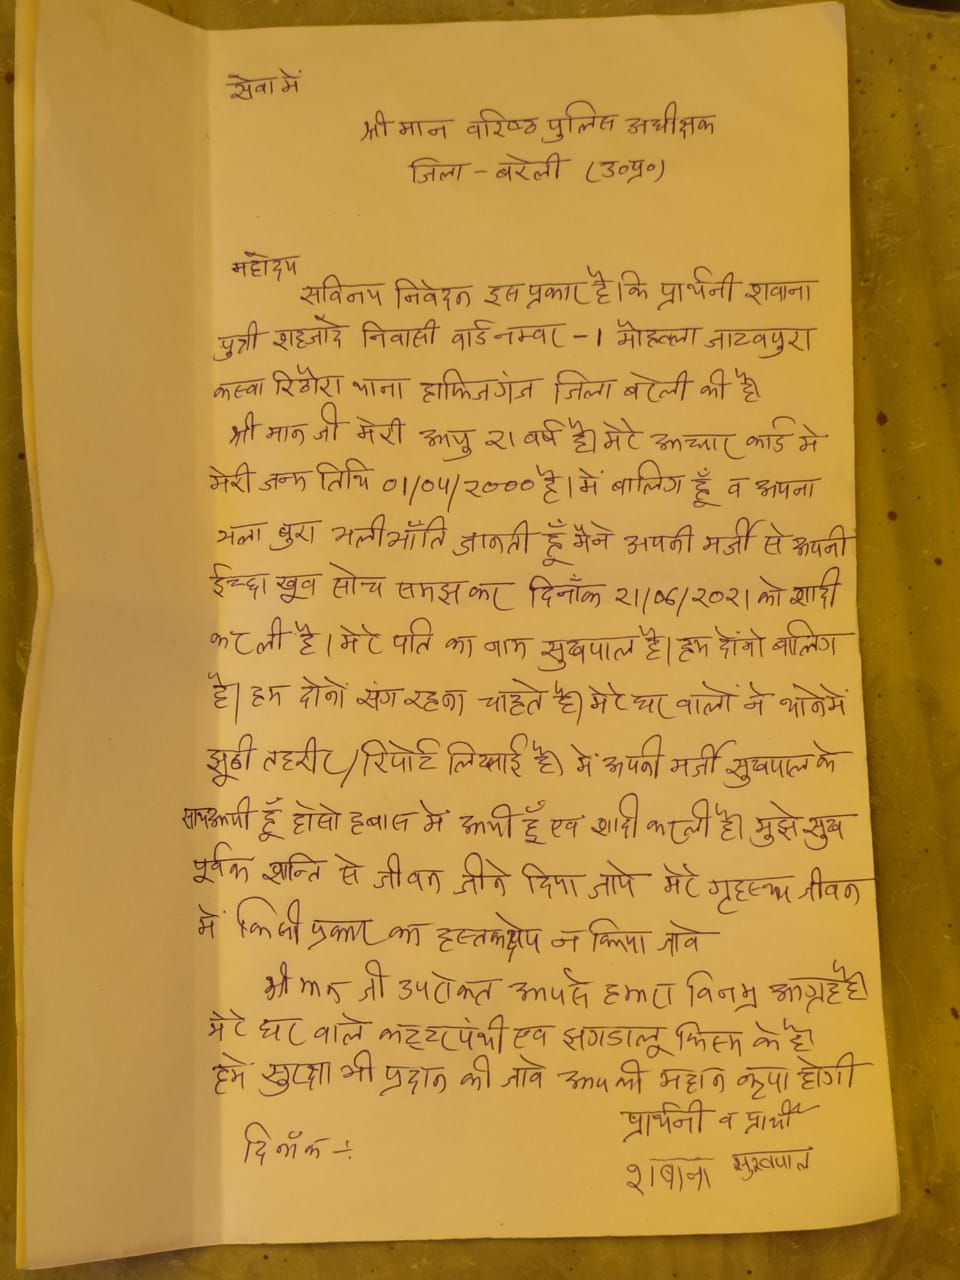 सेवा में
श्री मान वरिष्ठ पुलिस अधीक्षक
जिला - बरेली (उ०प्र०)
महोदय
सविनय निवेदन इस प्रकार है। कि प्रार्थनी शवाना
पुत्री शहजादे निवासी वार्ड नम्वर -1 मौहल्ला जाटवपुरा
कस्वा रिठौरा थाना हाफिजगंज जिला बरेली की है।
श्री मान जी मेरी आयु २1 वर्ष है। मेरे आधार कार्ड मे
मेरी जन्म तिथि 01/04/२000 है। में बालिग हूँ व अपना
भला बुरा भलीभाँति जानती हूँ मैने अपनी मर्जी से अपनी
ईच्छा खूव सोच समझ कर दिनाँक २1/06/२0२1 को शादी
कर ली है। मेरे पति का नाम सुखपाल है। हम दोनो बालिग
है। हम दोनों संग रहना चाहते है। मेरे घर वालों ने थानेमें
झूठी तहरीर/रिपोर्ट लिखाई है। में अपनी मर्जी सुखपाल के
साथ आयी हूँ होसो हबास में आयी हूँ एवं शादी करली है। मुझे सुख
पूर्वक शान्ति से जीवन जीने दिया जाये मेरे गृहस्थ जीवन
में किसी प्रकार का हस्तक्षेप न किया जावे
श्री मान जी उपरोक्त आपसे हमारा विनम्र आग्रह है।
मेरे घर वाले कट्टरपंथी एवं झगडालू किस्म के है।
हमे सुरक्षा भी प्रदान की जावे आपकी महान कृपा होगी
प्रार्थनी व प्रार्थी
दिनाँक ÷
शबाना सुखपाल